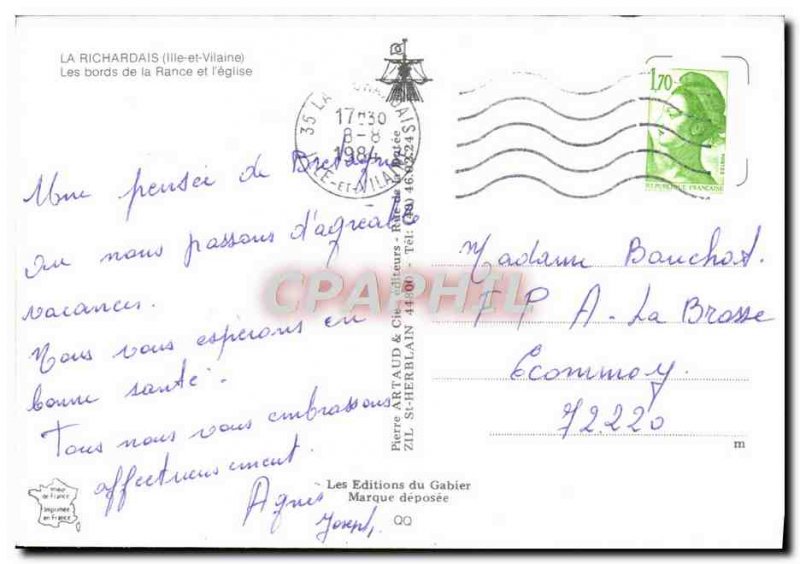 LA RICHARDAIS (Ille-et-Vilaine)
Les bords de la Rance et l'église
Une pensée de Bretagne
où nous passons d'agréable
vacances.
Nous vous espérons en
bonne santé.
Tous nous vous embrassons
affectueusement.
Agnès
Joseph
35 LA RICHARDAIS
17H30
8-8
1984
ILLE-ET-VILAINE
Pierre ARTAUD & Cie - éditeurs - Rue de la
ZIL St-HERBLAIN 44800 - Tél: (40) 46.02.24
1,70
REPUBLIQUE FRANÇAISE
Madame Bauchot.
I P A - La Brosse
Ecommoy
72.220
m
CPAPHIL
Les Editions du Gabier
Marque déposée
Imprimée
en France